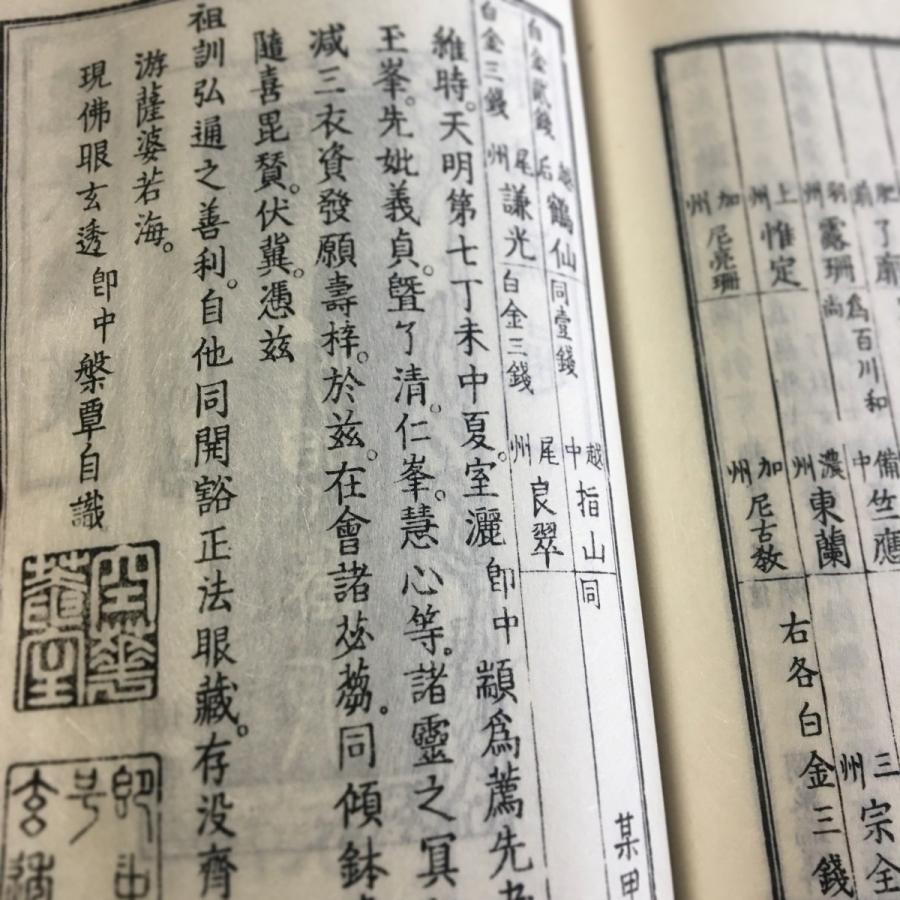 右各白金三錢
三州宗全
備中竺應
濃州東蘭
加州尼古敎
了廓
羽州露珊
為百川和尚
上州惟定
加州尼亮珊
某甲
白金貳錢
越后鶴仙
同壹錢
越中指山
同
白金三錢
尾州謙光
白金三錢
尾州良翠
維時。天明第七丁未中夏。室灑卽中顓爲薦先
玉峯。先妣義貞。曁了清。仁峯。慧心等。諸靈之冥
减三衣資發願壽梓。於茲。在會諸苾蒭。同傾鉢
隨喜毘賛。伏冀。憑茲
祖訓弘通之善利。自他同開豁正法眼藏。存没齊
游薩婆若海。
現佛眼玄透卽中槃覃自識